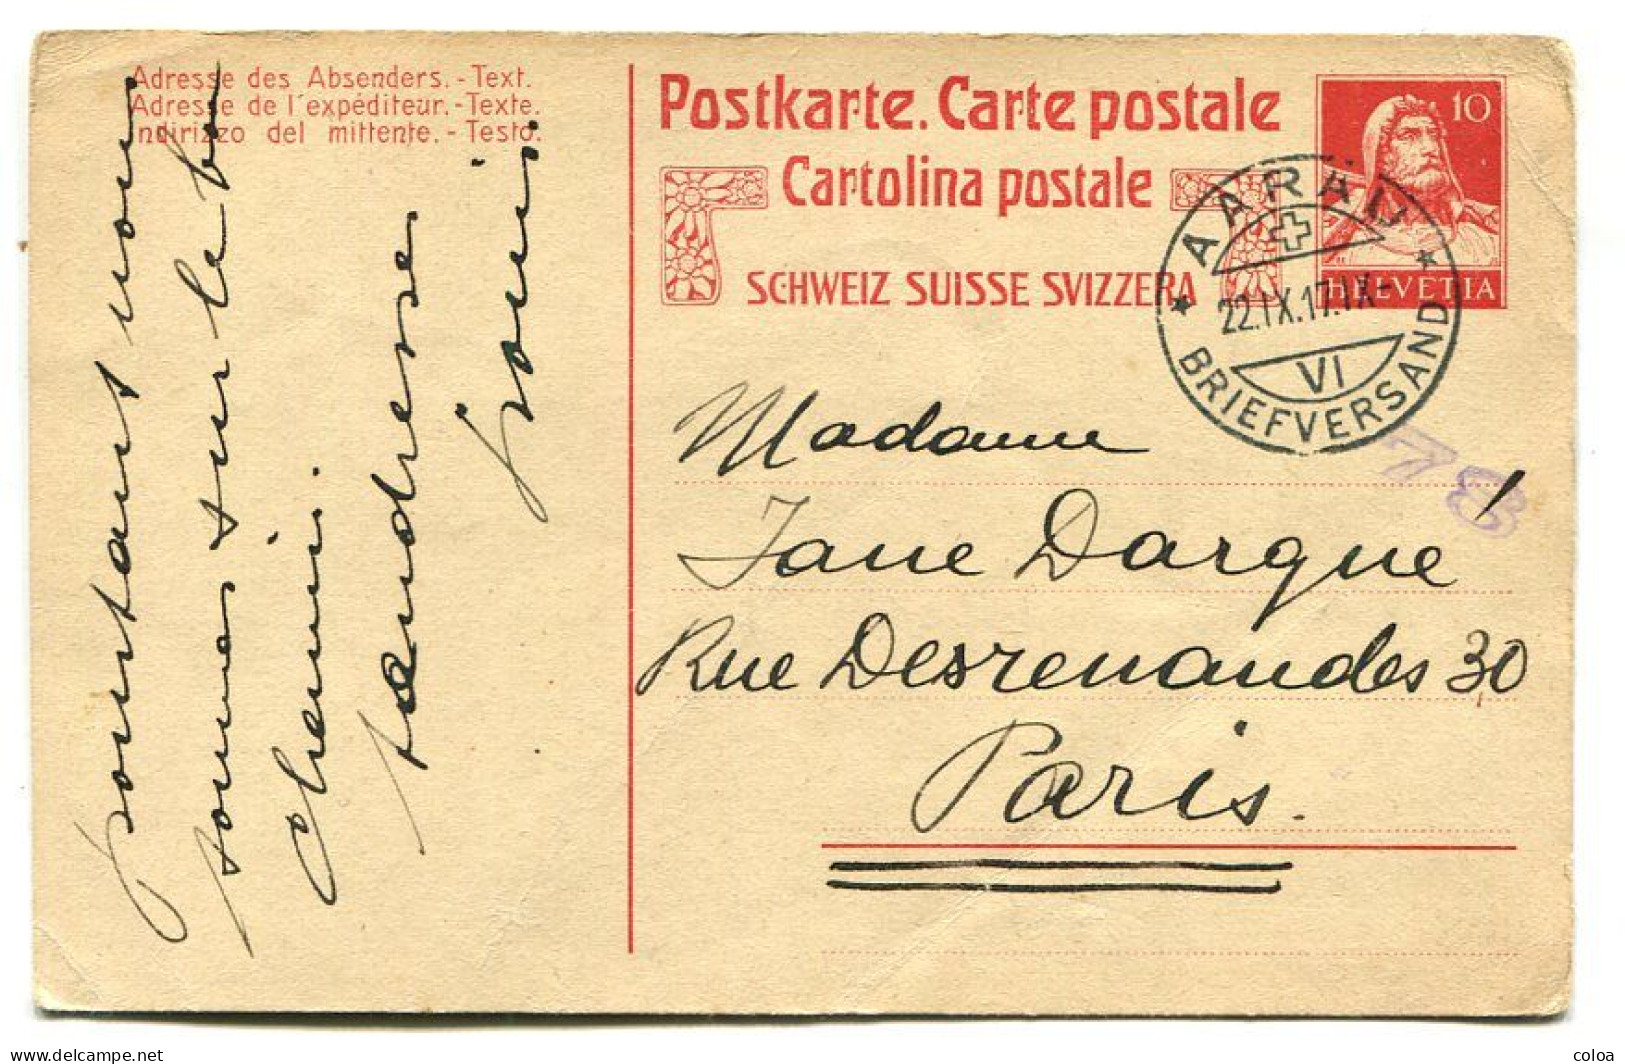 Adresse des Absenders. - Text.
Adresse de l'expéditeur. - Texte.
Indirizzo del mittente. - Testo.
Postkarte. Carte postale
Cartolina postale
SCHWEIZ SUISSE SVIZZERA
10
HELVETIA
AARAU
22.IX.17.IX-
VI
BRIEFVERSAND
78
Madame
Jane Dargué
Rue Desrenaudes 30
Paris.
pourtant nous
sommes sur le bon
chemin.
tendresse
Louis.
delcampe.net
coloa